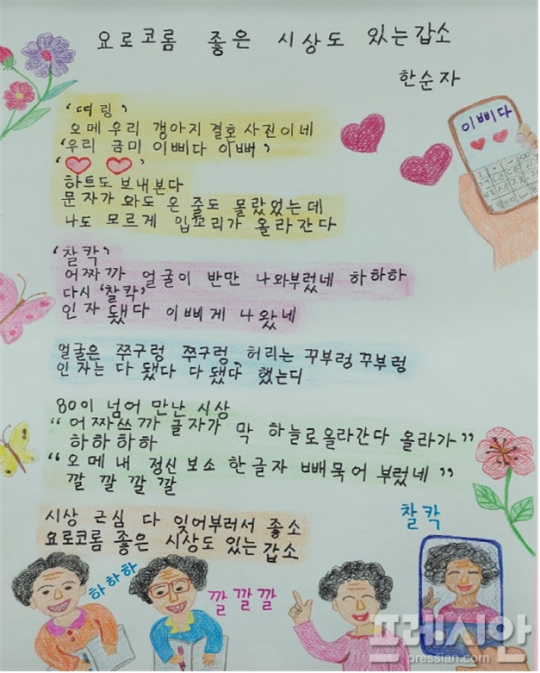 요로코롬 좋은 시상도 있는갑소
한순자
‘띠링’
오메 우리 갱아지 결혼사진이네
‘우리 금미 이삐다 이뻐’
‘♥ ♥’
하트도 보내본다
문자가 와도 온 줄도 몰랐었는데
나도 모르게 입꼬리가 올라간다
‘찰칵’
어짜까 얼굴이 반만 나와부렀네 하하하
다시 ‘찰칵’
인자 됐다 이삐게 나왔네
얼굴은 쭈구렁 쭈구렁, 허리는 꾸부렁 꾸부렁
인자는 다 됐다 다 됐다, 했는디
80이 넘어 만난 시상
“어짜쓰까 글자가 막 하늘로 올라간다 올라가”
하하하하
“오메 내 정신 보소 한글자 빼묵어 부렀네”
깔 깔 깔 깔
시상 근심 다 잊어부러서 좋소
요로코롬 좋은 시상도 있는갑소
이삐다
하하하
깔 깔 깔
찰칵
프레시안
pressian.com